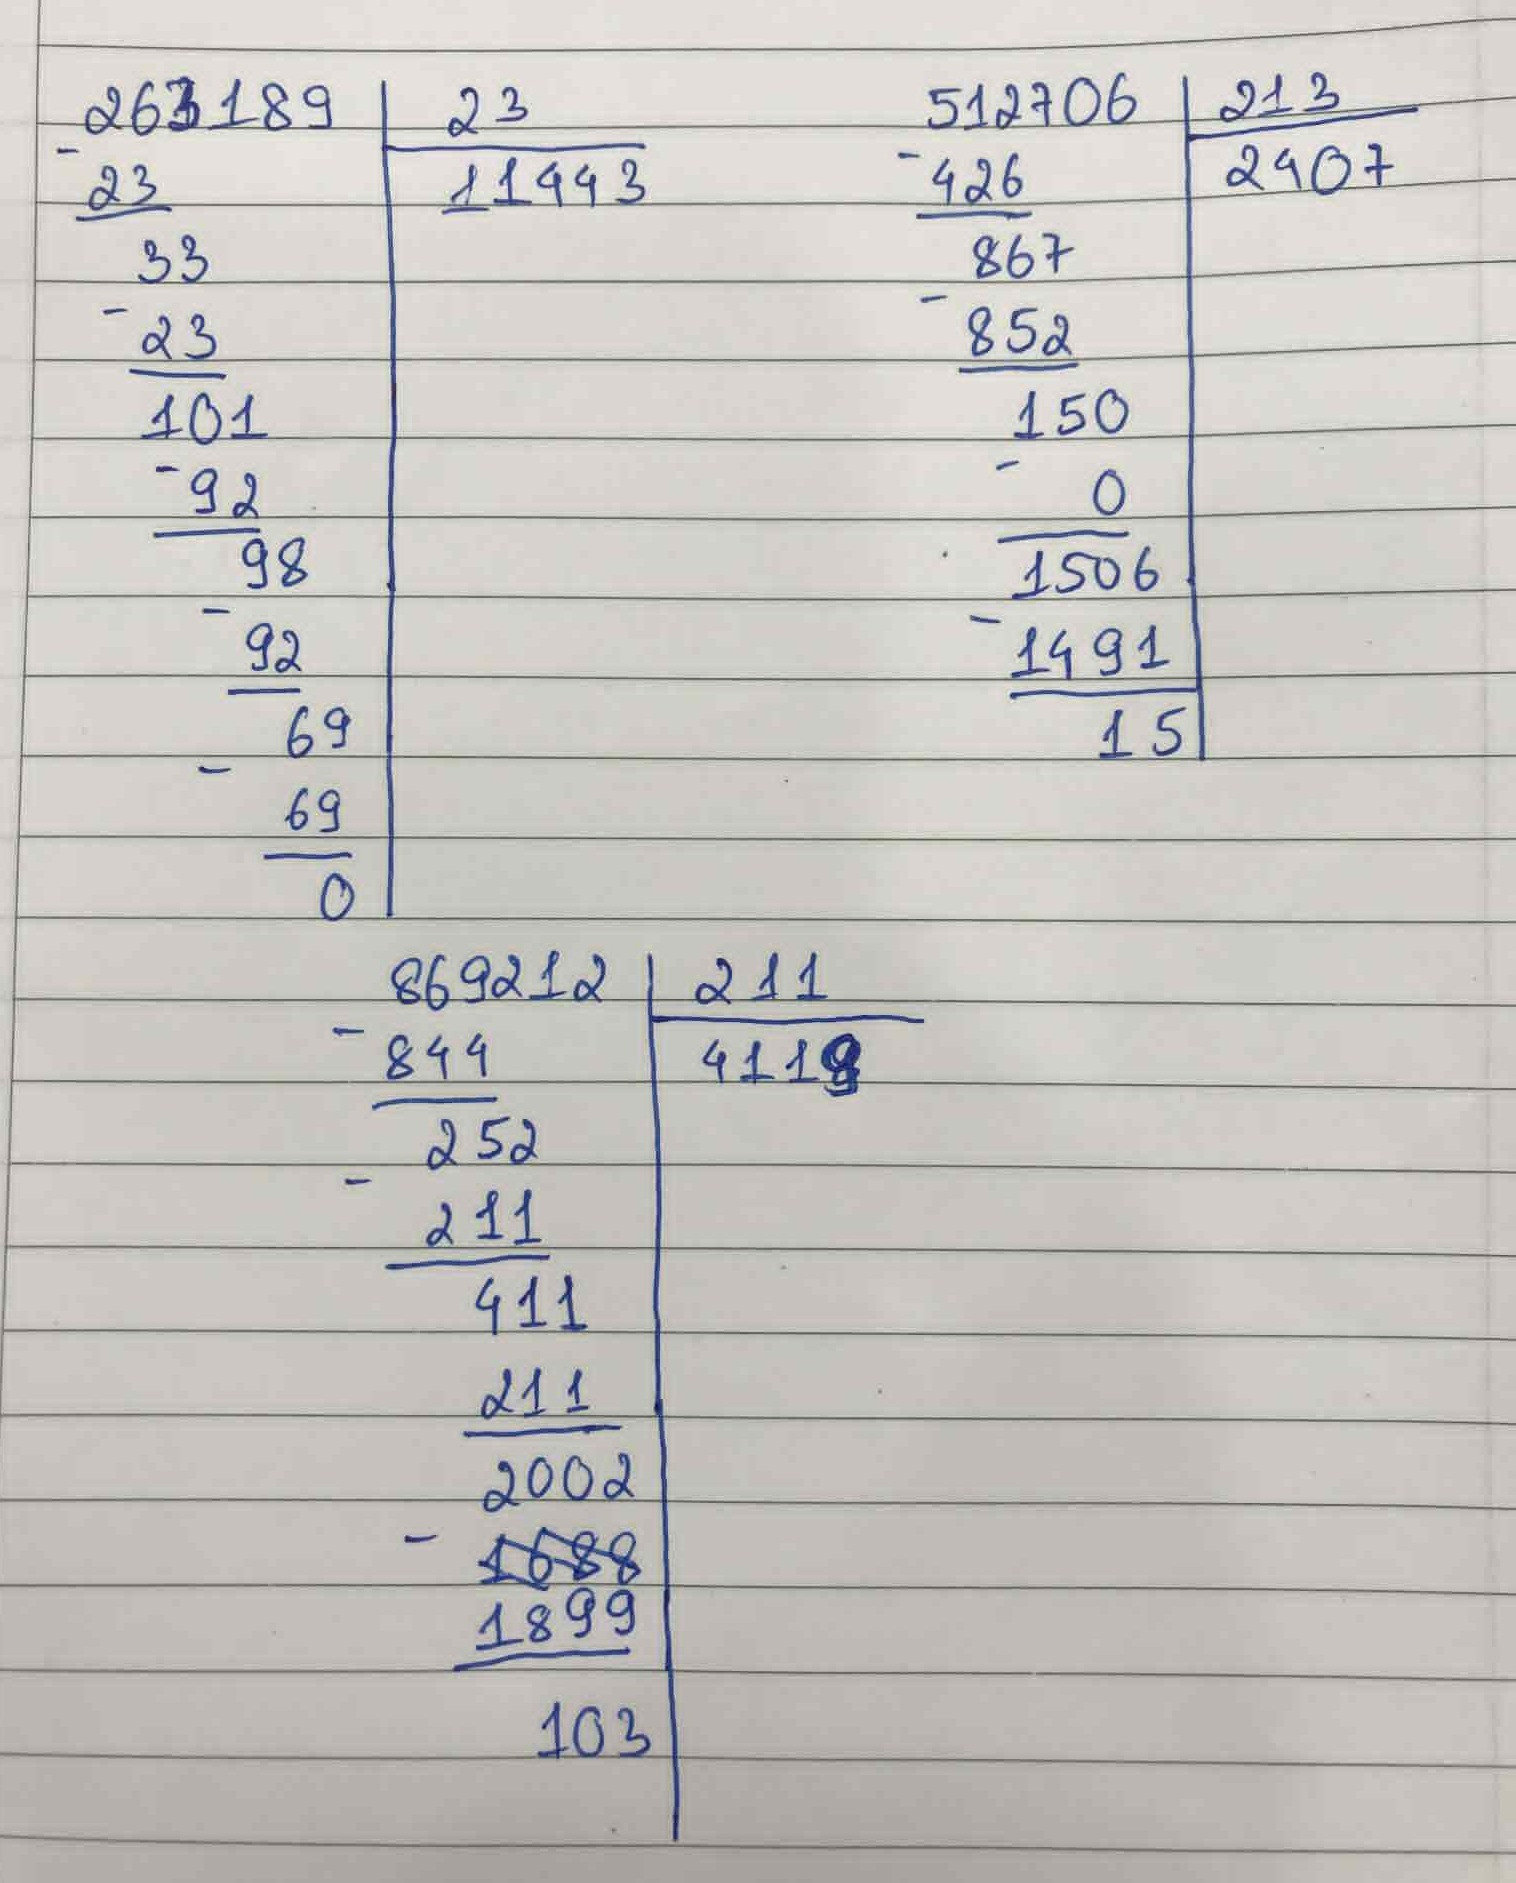 263189 23
- 23 11443
33
- 23
101
- 92
98
- 92
69
- 69
0
512706 213
- 426 2407
867
- 852
150
- 0
1506
- 1491
15
869212 211
- 844 4119
252
- 211
411
211
2002
- 1688
1899
103